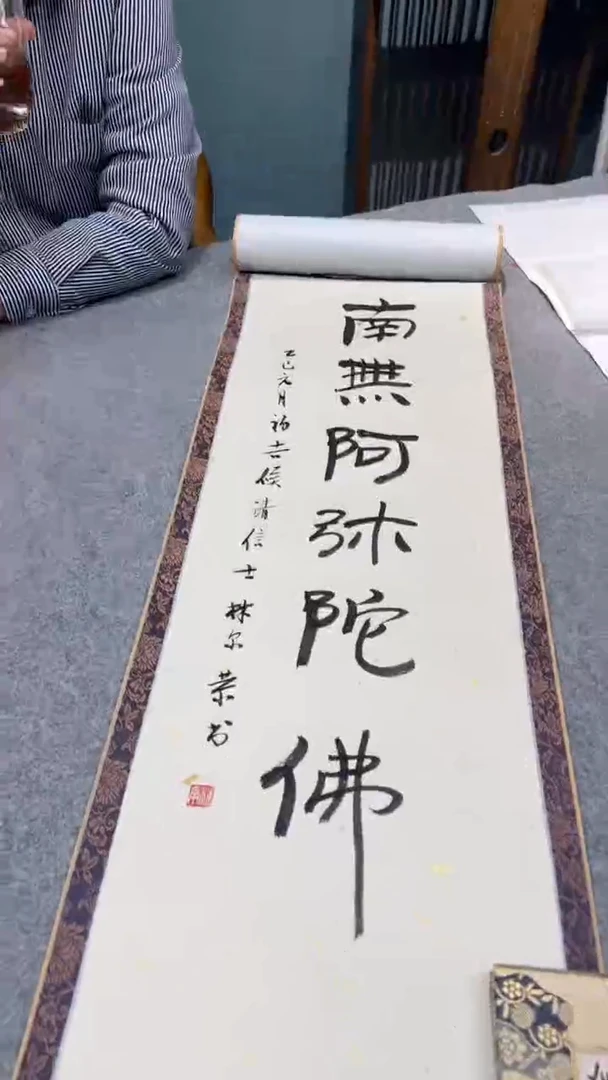 南無阿弥陀佛
乙巳元月初吉候清信士林尔荣书